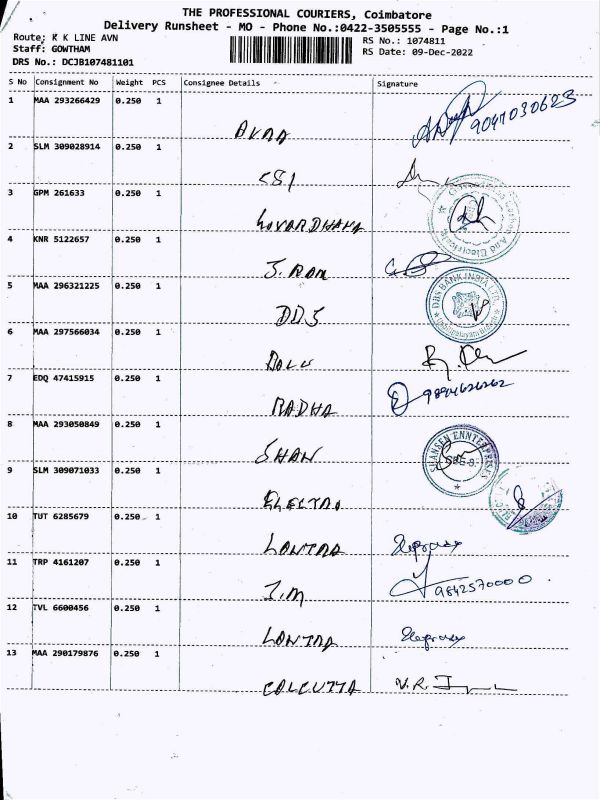 THE PROFESSIONAL COURIERS, Coimbatore
Delivery Runsheet - MO - Phone No.:0422-3505555 - Page No.:1
Route: K K LINE AVN
RS No.: 1074811
Staff: GOWTHAM
RS Date: 09-Dec-2022
DRS No.: DCJB107481101
S No Consignment No Weight PCS Consignee Details Signature
1 MAA 293266429 0.250 1
9047030623
2 SLM 309028914 0.250 1
SSI
3 GPM 261633 0.250 1
GOVARDHANA
And Electricals
4 KNR 5122657 0.250 1
J. RAM
5 MAA 296321225 0.250 1
DBS BANK INDIA LTD.
DDS
6 MAA 297566034 0.250 1
7 EDQ 47415915 0.250 1
9894626262
RADHA
8 MAA 293050849 0.250 1
SHAN
SHANSEN ENNTERPRISES
9 SLM 309071033 0.250 1
ELECTRO
10 TUT 6285679 0.250 1
LAWTRA
11 TRP 4161207 0.250 1
9842570000
J.M
12 TVL 6600456 0.250 1
LAWTRA
13 MAA 290179876 0.250 1
CALCUTTA V.R.